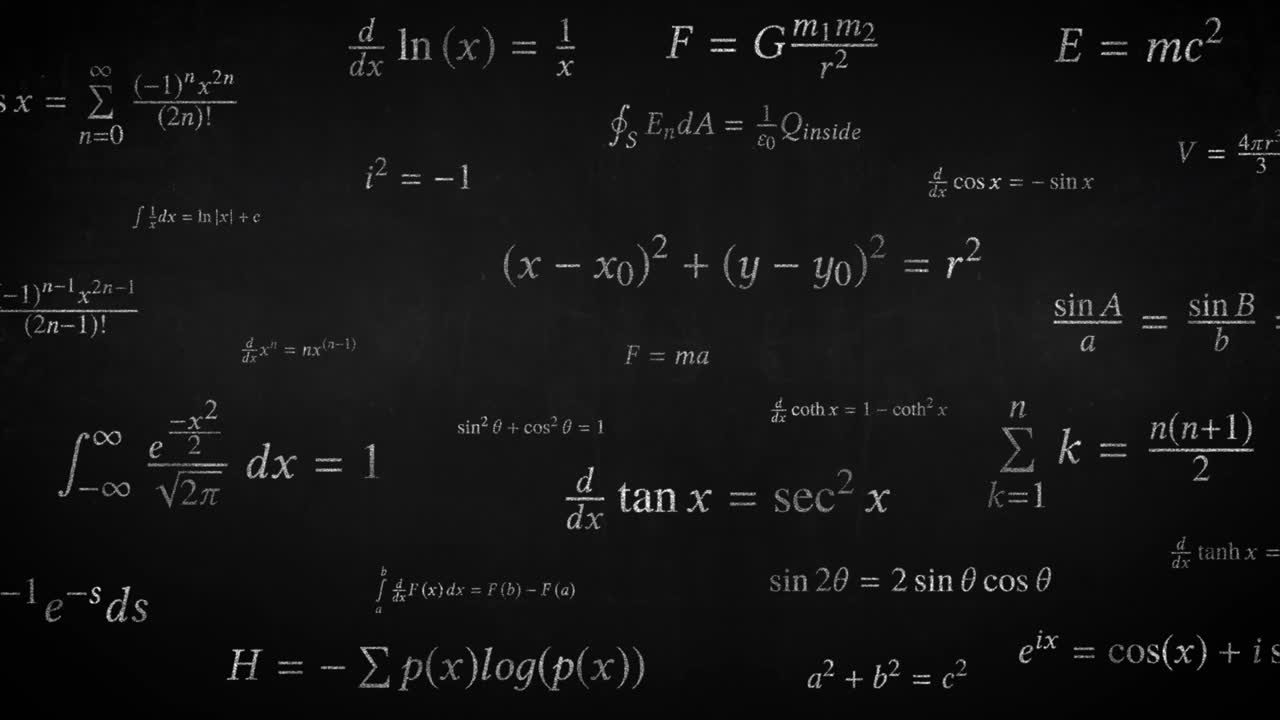 d/dx ln (x) = 1/x
F = G m₁m₂/r²
E = mc²
s x = ∑_{n=0}^{∞} (-1)ⁿx²ⁿ/(2n)!
∮_S EₙdA = 1/ε₀ Q_{inside}
V = 4πr³/3
i² = −1
d/dx cos x = − sin x
∫ 1/x dx = ln |x| + c
(x − x₀)² + (y − y₀)² = r²
(−1)ⁿ⁻¹x²ⁿ⁻¹/(2n−1)!
sin A/a = sin B/b =
d/dx xⁿ = nx⁽ⁿ⁻¹⁾
F = ma
d/dx coth x = 1 − coth² x
sin² θ + cos² θ = 1
∫_{−∞}^{∞} e^{−x²/2}/√2π dx = 1
∑_{k=1}^{n} k = n(n+1)/2
d/dx tan x = sec² x
d/dx tanh x =
∫_a^b d/dx F(x) dx = F(b) − F(a)
sin 2θ = 2 sin θ cos θ
⁻¹e⁻ˢds
H = − ∑ p(x)log(p(x))
a² + b² = c²
e^{ix} = cos(x) + i s